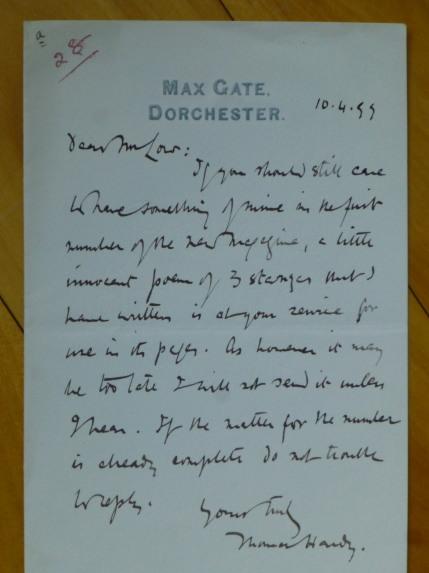 a
MAX GATE,
DORCHESTER.
10.4.99
Dear Mr Low:
If you should still care
to have something of mine in the first
number of the new magazine, a little
innocent poem of 3 stanzas that I
have written is at your service for
use in its pages. As however it may
be too late I will not send it unless
I hear. If the matter for the number
is already complete do not trouble
to reply.
Yours truly
Thomas Hardy.